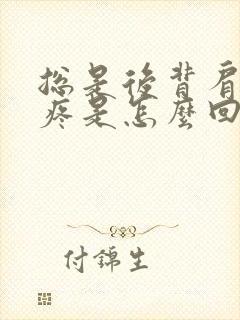 总是後背肩
疼是怎麼回
付錦生